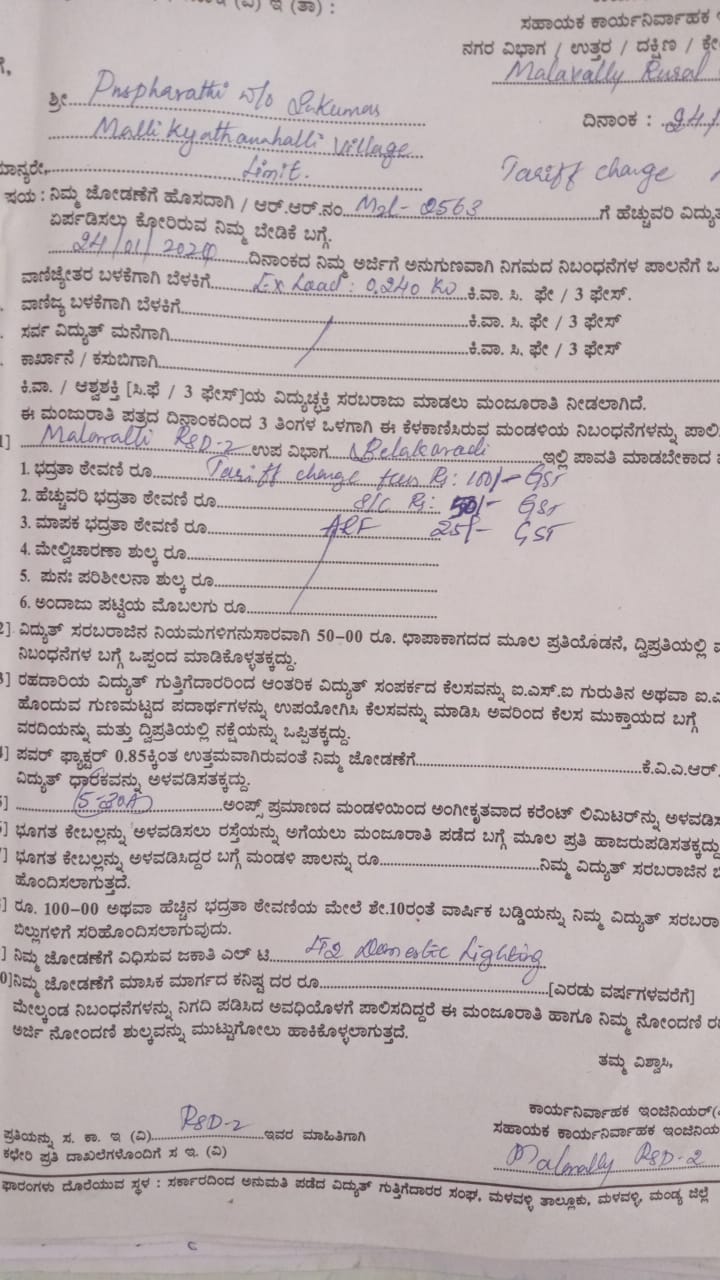 ಸಹಾಯಕ ಕಾರ್ಯನಿರ್ವಾಹಕ
ನಗರ ವಿಭಾಗ / ಉತ್ತರ / ದಕ್ಷಿಣ /
Malavally Rural
ಶ್ರೀ Puspharathi w/o Sukumar
ದಿನಾಂಕ : 24/
Mallikyathanahalli Village
Limit.
Tariff change
ನಿಮ್ಮ ಜೋಡಣೆಗೆ ಹೊಸದಾಗಿ / ಆರ್.ಆರ್.ನಂ. Mzl- 2563 ಗೆ ಹೆಚ್ಚುವರಿ
ಏರ್ಪಡಿಸಲು ಕೋರಿರುವ ನಿಮ್ಮ ಬೇಡಿಕೆ ಬಗ್ಗೆ.
24/01/ ದಿನಾಂಕದ ನಿಮ್ಮ ಅರ್ಜಿಗೆ ಅನುಗುಣವಾಗಿ ನಿಗಮದ ನಿಬಂಧನೆಗಳ ಪಾಲನೆಗೆ
ವಾಣಿಜ್ಯೇತರ ಬಳಕೆಗಾಗಿ ಬೆಳಕಿಗೆ Ex Load : 0.240 KW ಕಿ.ವಾ. ಸಿ. ಫೇ / 3 ಫೇಸ್.
ವಾಣಿಜ್ಯ ಬಳಕೆಗಾಗಿ ಬೆಳಕಿಗೆ ಕಿ.ವಾ. ಸಿ. ಫೇ / 3 ಫೇಸ್
ಸರ್ವ ವಿದ್ಯುತ್ ಮನೆಗಾಗಿ ಕಿ.ವಾ. ಸಿ. ಫೇ / 3 ಫೇಸ್
ಕಾರ್ಖಾನೆ / ಕಸುಬಿಗಾಗಿ
ಕಿ.ವಾ. / ಅಶ್ವಶಕ್ತಿ [ಸಿ.ಫೆ / 3 ಫೇಸ್]ಯ ವಿದ್ಯುಚ್ಛಕ್ತಿ ಸರಬರಾಜು ಮಾಡಲು ಮಂಜೂರಾತಿ ನೀಡಲಾಗಿದೆ.
ಈ ಮಂಜುರಾತಿ ಪತ್ರದ ದಿನಾಂಕದಿಂದ 3 ತಿಂಗಳ ಒಳಗಾಗಿ ಈ ಕೆಳಕಾಣಿಸಿರುವ ಮಂಡಳಿಯ ನಿಬಂಧನೆಗಳನ್ನು
1] Malavalli RSD-2 ಉಪ ವಿಭಾಗ Belakavadi ಇಲ್ಲಿ ಪಾವತಿ ಮಾಡಬೇಕಾದ
1. ಭದ್ರತಾ ಠೇವಣಿ ರೂ Tariff change fees Rs: 100/- GST
2. ಹೆಚ್ಚುವರಿ ಭದ್ರತಾ ಠೇವಣಿ ರೂ S/C Rs: 50/- GST
3. ಮಾಪಕ ಭದ್ರತಾ ಠೇವಣಿ ರೂ ARF 25/- GST
4. ಮೇಲ್ವಿಚಾರಣಾ ಶುಲ್ಕ ರೂ
5. ಪುನಃ ಪರಿಶೀಲನಾ ಶುಲ್ಕ ರೂ
6. ಅಂದಾಜು ಪಟ್ಟಿಯ ಮೊಬಲಗು ರೂ
2] ವಿದ್ಯುತ್ ಸರಬರಾಜಿನ ನಿಯಮಗಳಿಗನುಸಾರವಾಗಿ 50-00 ರೂ. ಛಾಪಾಕಾಗದದ ಮೂಲ ಪ್ರತಿಯೊಡನೆ, ದ್ವಿಪ್ರತಿಯಲ್ಲಿ
ನಿಬಂಧನೆಗಳ ಬಗ್ಗೆ ಒಪ್ಪಂದ ಮಾಡಿಕೊಳ್ಳತಕ್ಕದ್ದು.
3] ರಹದಾರಿಯ ವಿದ್ಯುತ್ ಗುತ್ತಿಗೆದಾರರಿಂದ ಆಂತರಿಕ ವಿದ್ಯುತ್ ಸಂಪರ್ಕದ ಕೆಲಸವನ್ನು ಐ.ಎಸ್.ಐ ಗುರುತಿನ ಅಥವಾ
ಹೊಂದುವ ಗುಣಮಟ್ಟದ ಪದಾರ್ಥಗಳನ್ನು ಉಪಯೋಗಿಸಿ ಕೆಲಸವನ್ನು ಮಾಡಿಸಿ ಅವರಿಂದ ಕೆಲಸ ಮುಕ್ತಾಯದ ಬಗ್ಗೆ
ವರದಿಯನ್ನು ಮತ್ತು ದ್ವಿಪ್ರತಿಯಲ್ಲಿ ನಕ್ಷೆಯನ್ನು ಒಪ್ಪಿತಕ್ಕದ್ದು.
ಪವರ್ ಫ್ಯಾಕ್ಟರ್ 0.85ಕ್ಕಿಂತ ಉತ್ತಮವಾಗಿರುವಂತೆ ನಿಮ್ಮ ಜೋಡಣೆಗೆ ಕೆ.ವಿ.ಎ.ಆರ್.
ವಿದ್ಯುತ್ ಧಾರಕವನ್ನು ಅಳವಡಿಸತಕ್ಕದ್ದು.
5-20A ಅಂಪ್ಸ್ ಪ್ರಮಾಣದ ಮಂಡಳಿಯಿಂದ ಅಂಗೀಕೃತವಾದ ಕರೆಂಟ್ ಲಿಮಿಟರ್‌ನ್ನು
ಭೂಗತ ಕೇಬಲ್ಲನ್ನು ಅಳವಡಿಸಲು ರಸ್ತೆಯನ್ನು ಅಗೆಯಲು ಮಂಜೂರಾತಿ ಪಡೆದ ಬಗ್ಗೆ ಮೂಲ ಪ್ರತಿ ಹಾಜರುಪಡಿಸತಕ್ಕದ್ದು
ಭೂಗತ ಕೇಬಲ್ಲನ್ನು ಅಳವಡಿಸಿದ್ದರ ಬಗ್ಗೆ ಮಂಡಳಿ ಪಾಲನ್ನು ರೂ ನಿಮ್ಮ ವಿದ್ಯುತ್ ಸರಬರಾಜಿನ
ಹೊಂದಿಸಲಾಗುತ್ತದೆ.
ರೂ. 100-00 ಅಥವಾ ಹೆಚ್ಚಿನ ಭದ್ರತಾ ಠೇವಣಿಯ ಮೇಲೆ ಶೇ.10ರಂತೆ ವಾರ್ಷಿಕ ಬಡ್ಡಿಯನ್ನು ನಿಮ್ಮ ವಿದ್ಯುತ್
ಬಿಲ್ಲುಗಳಿಗೆ ಸರಿಹೊಂದಿಸಲಾಗುವುದು.
ನಿಮ್ಮ ಜೋಡಣೆಗೆ ವಿಧಿಸುವ ಜಕಾತಿ ಎಲ್ ಟಿ Domestic Lighting
ನಿಮ್ಮ ಜೋಡಣೆಗೆ ಮಾಸಿಕ ಮಾರ್ಗದ ಕನಿಷ್ಟ ದರ ರೂ [ಎರಡು ವರ್ಷಗಳವರೆಗೆ]
ಮೇಲ್ಕಂಡ ನಿಬಂಧನೆಗಳನ್ನು ನಿಗದಿ ಪಡಿಸಿದ ಅವಧಿಯೊಳಗೆ ಪಾಲಿಸದಿದ್ದರೆ ಈ ಮಂಜೂರಾತಿ ಹಾಗೂ ನಿಮ್ಮ ನೋಂದಣಿ
ಅರ್ಜಿ ನೋಂದಣಿ ಶುಲ್ಕವನ್ನು ಮುಟ್ಟುಗೋಲು ಹಾಕಿಕೊಳ್ಳಲಾಗುತ್ತದೆ.
ತಮ್ಮ ವಿಶ್ವಾಸಿ,
ಕಾರ್ಯನಿರ್ವಾಹಕ ಇಂಜಿನಿಯರ್
ಪ್ರತಿಯನ್ನು ಸ. ಕಾ. ಇ (ವಿ) RSD-2 ಇವರ ಮಾಹಿತಿಗಾಗಿ
ಸಹಾಯಕ ಕಾರ್ಯನಿರ್ವಾಹಕ
ಕಛೇರಿ ಪ್ರತಿ ದಾಖಲೆಗಳೊಂದಿಗೆ ಸ ಇ. (ವಿ)
Malavally RSD-2
ಫಾರಂಗಳು ದೊರೆಯುವ ಸ್ಥಳ : ಸರ್ಕಾರದಿಂದ ಅನುಮತಿ ಪಡೆದ ವಿದ್ಯುತ್ ಗುತ್ತಿಗೆದಾರರ ಸಂಘ, ಮಳವಳ್ಳಿ ತಾಲ್ಲೂಕು, ಮಳವಳ್ಳಿ, ಮಂಡ್ಯ ಜಿಲ್ಲೆ